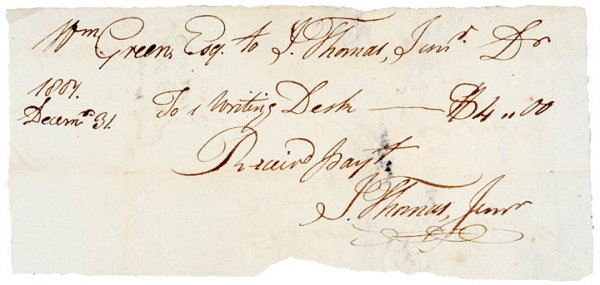 Wm Green, Esq. to I. Thomas, Junr. Dr
1807.
Decemr. 31. To 1 Writing Desk — $4.,00
Receivd payt.
I. Thomas, Junr